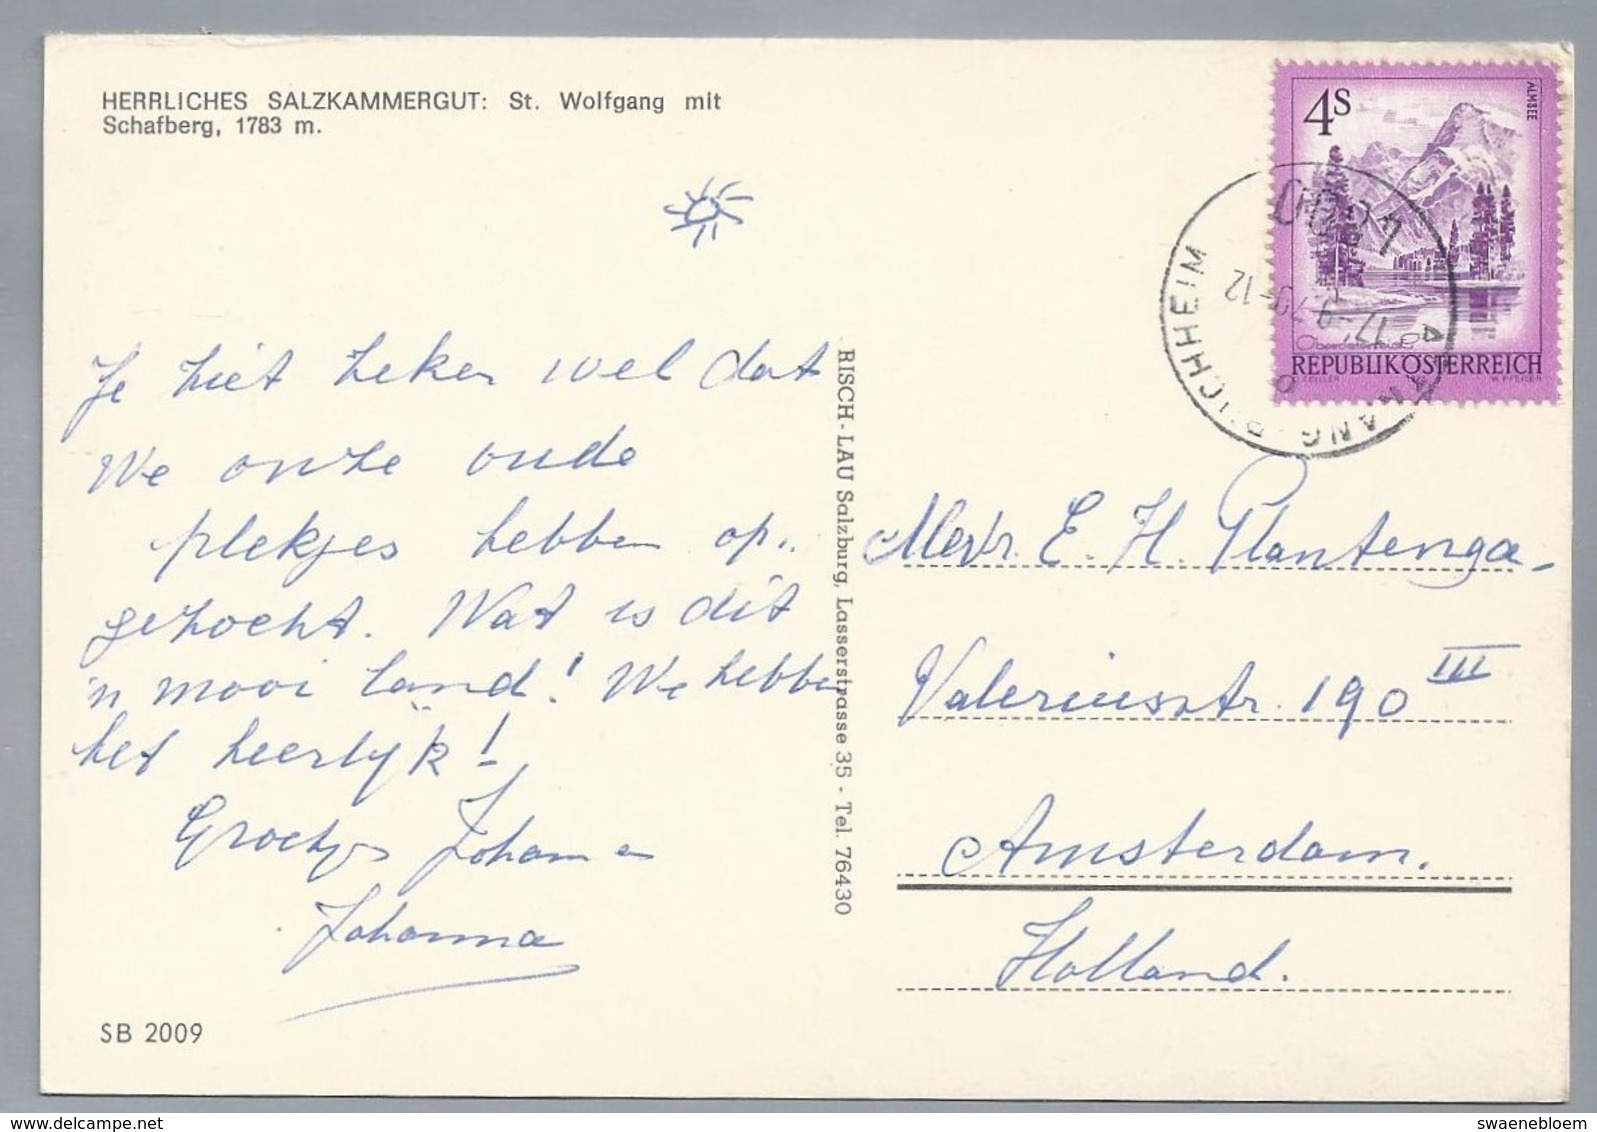 HERRLICHES SALZKAMMERGUT: St. Wolfgang mit
Schafberg, 1783 m.
Je ziet zeker wel dat
We onze oude
plekjes hebben op..
gezocht. Wat is dit
'n mooi land! We hebben
het heerlijk!
Groetjes Johanna
Johanna
SB 2009
RISCH-LAU Salzburg, Lasserstrasse 35 - Tel. 76430
4S
ALMSEE
Oberösterreich
REPUBLIK ÖSTERREICH
W. PFEILER
4840
17.-9.79-12
PUCHHEIM
Mevr. E. H. Plantenga-
Valeriusstr. 190 III
Amsterdam.
Holland.
swaenebloem